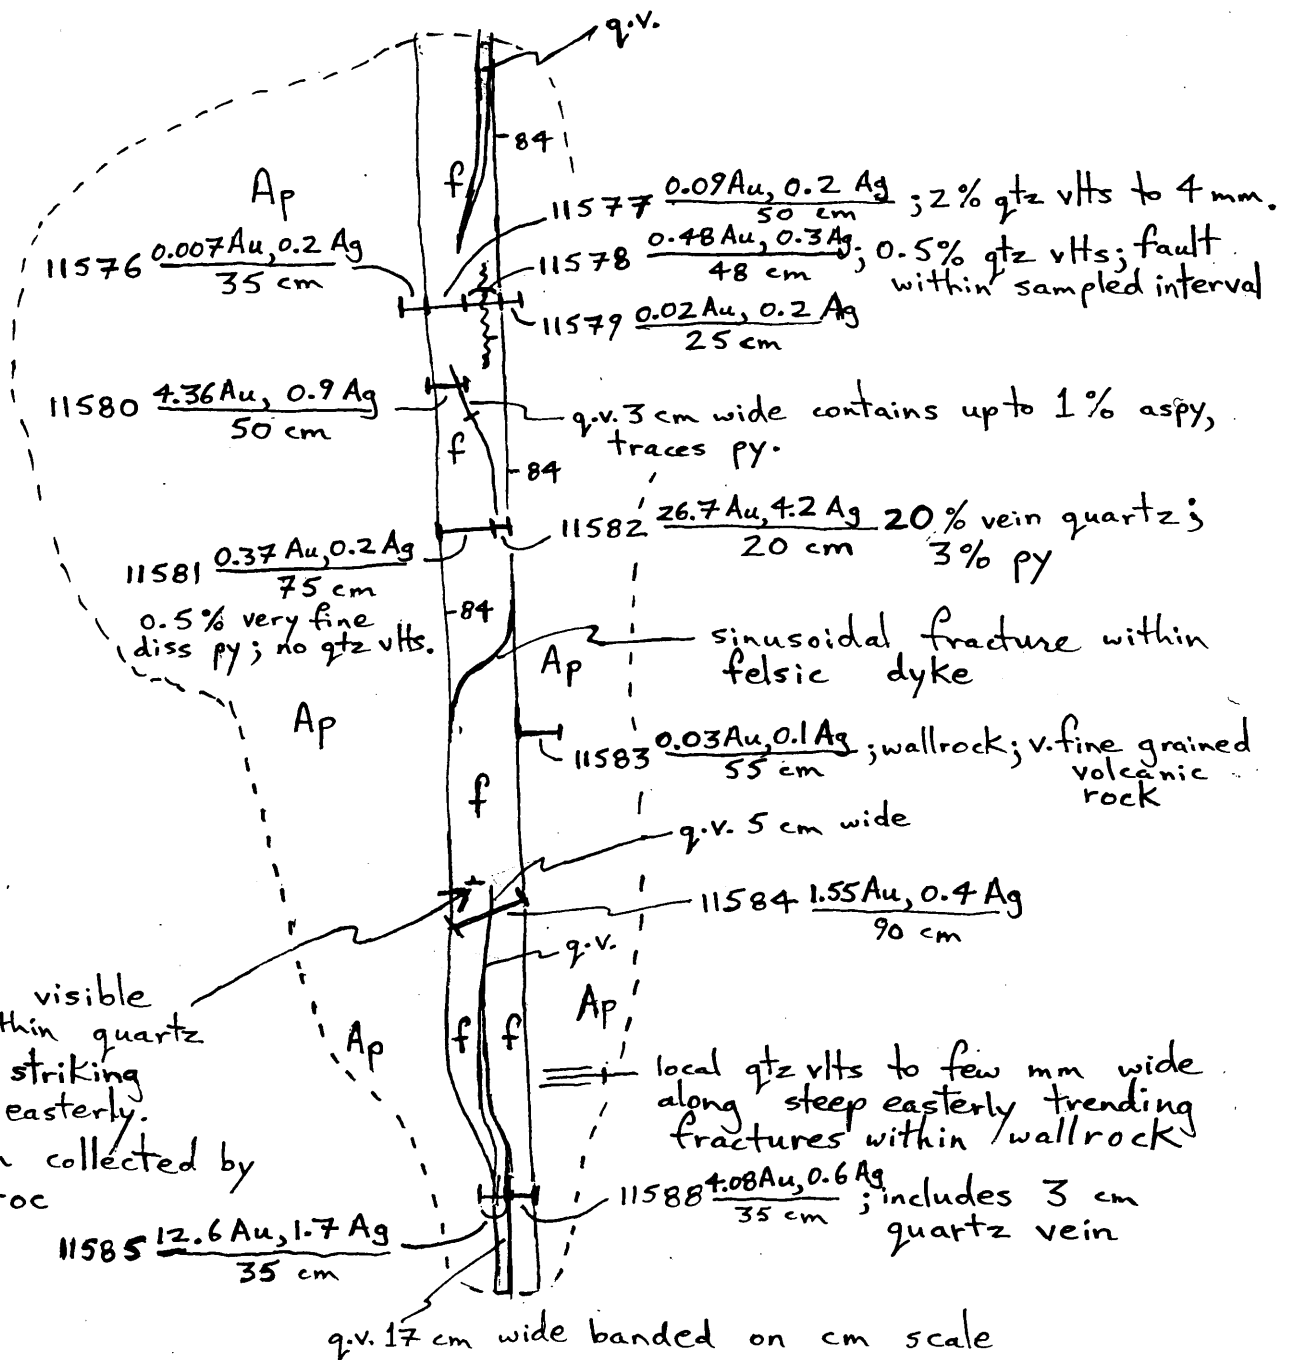 q.v.
84
f
Ap
11577 0.09 Au, 0.2 Ag / 50 cm ; 2% qtz vlts to 4 mm.
11576 0.007 Au, 0.2 Ag / 35 cm
11578 0.48 Au, 0.3 Ag / 48 cm ; 0.5% qtz vlts; fault
within sampled interval
11579 0.02 Au, 0.2 Ag / 25 cm
11580 4.36 Au, 0.9 Ag / 50 cm
q.v. 3 cm wide contains up to 1% aspy,
traces py.
f
84
11582 26.7 Au, 4.2 Ag / 20 cm 20% vein quartz;
3% py
11581 0.37 Au, 0.2 Ag / 75 cm
0.5% very fine
diss py; no qtz vlts.
84
sinusoidal fracture within
felsic dyke
Ap
Ap
11583 0.03 Au, 0.1 Ag / 55 cm ; wallrock; v. fine grained
volcanic
rock
f
q.v. 5 cm wide
11584 1.55 Au, 0.4 Ag / 90 cm
q.v.
visible
thin quartz
striking
easterly.
collected by
oc
Ap
f
f
Ap
local qtz vlts to few mm wide
along steep easterly trending
fractures within wallrock
11588 4.08 Au, 0.6 Ag / 35 cm ; includes 3 cm
quartz vein
11585 12.6 Au, 1.7 Ag / 35 cm
q.v. 17 cm wide banded on cm scale